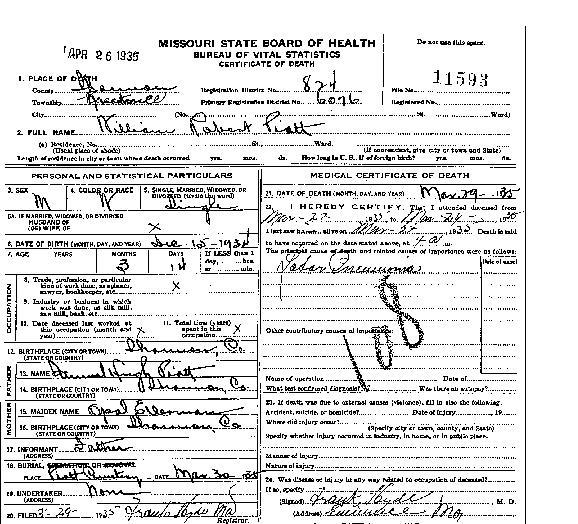 MISSOURI STATE BOARD OF HEALTH
BUREAU OF VITAL STATISTICS
CERTIFICATE OF DEATH
Do not use this space.
APR 26 1935
11593
1. PLACE OF DEATH
County Shannon Registration District No. 824 File No.
Township Primary Registration District No. 6096 Registered No.
City (No. St. Ward)
2. FULL NAME William Robert Piatt
(a) Residence, No. St. Ward.
(Usual place of abode) (If nonresident, give city or town and State)
Length of residence in city or town where death occurred yrs. mos. ds. How long in U. S. if of foreign birth? yrs. mos. ds.
PERSONAL AND STATISTICAL PARTICULARS
3. SEX M
4. COLOR OR RACE W
5. SINGLE, MARRIED, WIDOWED, OR DIVORCED (write the word) Single
5A. IF MARRIED, WIDOWED, OR DIVORCED
HUSBAND OF
(OR) WIFE OF X
6. DATE OF BIRTH (MONTH, DAY, AND YEAR) Dec 15-1934
7. AGE YEARS MONTHS 3 DAYS 14 If LESS than 1 day, hrs. or min.
OCCUPATION
8. Trade, profession, or particular kind of work done, as spinner, sawyer, bookkeeper, etc. X
9. Industry or business in which work was done, as silk mill, saw mill, bank, etc.
10. Date deceased last worked at this occupation (month and year) X
11. Total time (years) spent in this occupation X
12. BIRTHPLACE (CITY OR TOWN) Shannon, Co.
(STATE OR COUNTRY)
FATHER
13. NAME Hugh Piatt
14. BIRTHPLACE (CITY OR TOWN) Shannon Co
(STATE OR COUNTRY)
MOTHER
15. MAIDEN NAME Opal
16. BIRTHPLACE (CITY OR TOWN) Shannon, Co
(STATE OR COUNTRY)
17. INFORMANT Father
(ADDRESS)
18. BURIAL, CREMATION, OR REMOVAL
PLACE Piatt Cemetery DATE Mar 30 1935
19. UNDERTAKER None
(ADDRESS)
20. FILED 3-29- 1935 Frank Hyde MD
Registrar.
MEDICAL CERTIFICATE OF DEATH
21. DATE OF DEATH (MONTH, DAY, AND YEAR) Mar. 29- 35
22. I HEREBY CERTIFY, That I attended deceased from
Mar-27 1935 to Mar-29- 1935
I last saw h alive on Mar-27 1935 Death is said
to have occurred on the date stated above, at m.
The principal cause of death and related causes of importance were as follows:
Date of onset
Lobar Pneumonia
108
Other contributory causes of importance:
Name of operation Date of
What test confirmed diagnosis? Was there an autopsy?
23. If death was due to external causes (violence), fill in also the following:
Accident, suicide, or homicide? Date of injury 19
Where did injury occur?
(Specify city or town, county, and State)
Specify whether injury occurred in industry, in home, or in public place.
Manner of injury
Nature of injury
24. Was disease or injury in any way related to occupation of deceased?
If so, specify
(Signed) Frank Hyde M. D.
(Address) Eminence - Mo